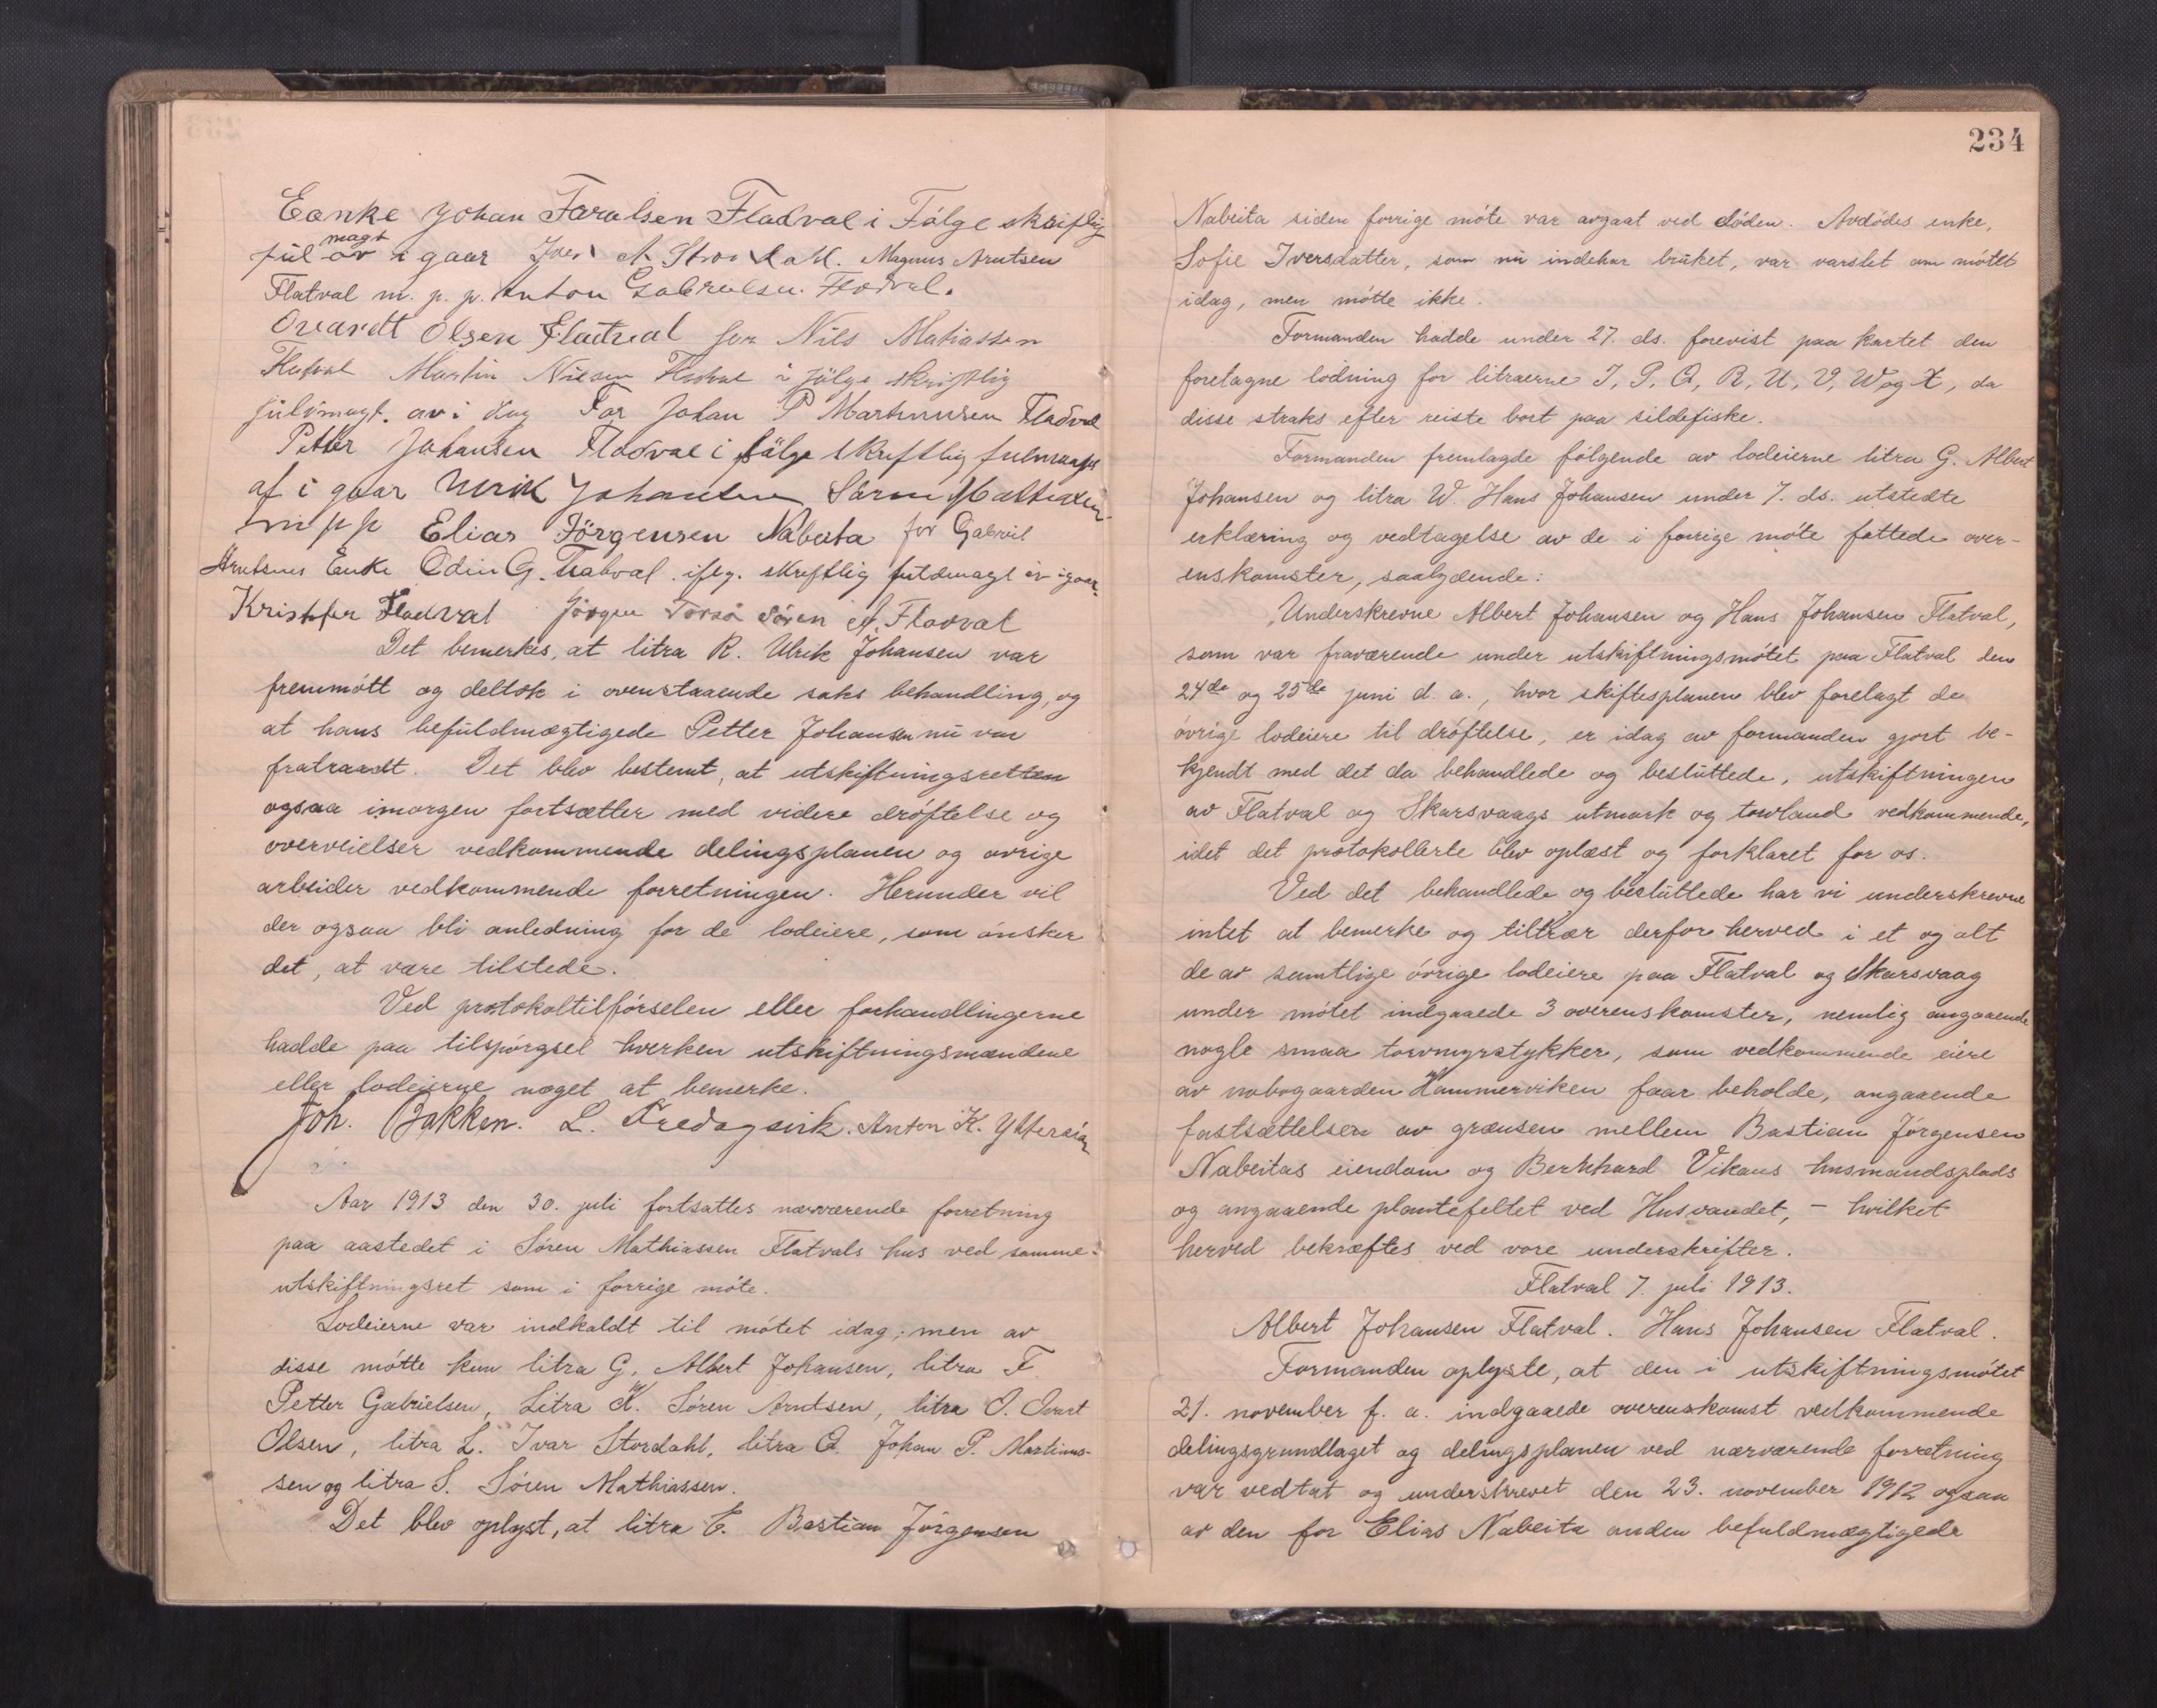 Eanke Johan Farulsen Fladval i Følge skriftlig
ful magt av i gaar Iver A Stordahl. Magnus Arntsen
Flatval m. p. p. Anton Gabrielsen Flodval.
Ovardt Olsen Flatval for Nils Matiassen
Flatval Martin Nilsen Flatval i følge skriftlig
fuldmagt. av i dag For Johan P Martinusen Fladval
Petter Johansen Fladval i følge skriftlig fulmagt
af i gaar Ulrik Johansen Søren Mathiassen
m p p Elias Jørgensen Nabeita for Gabriel
Arntsens Enke Odin G. Flatval. iflg. skriftlig fuldmagt av igaar.
Kristofer Fladval Jørgen Torsø Søren A. Fladval
Det bemerkes, at litra R. Ulrik Johansen var
fremmøtt og deltok i ovenstaaende saks behandling, og
at hans befuldmægtigede Petter Johansen nu var
fratraadt. Det blev bestemt, at utskiftningsretten
ogsaa imorgen fortsætter med videre drøftelse og
overveielser vedkommende delingsplanen og øvrige
arbeider vedkommende forretningen. Herunder vil
der ogsaa bli anledning for de lodeiere, som ønsker
det, at være tilstede.
Ved protokoltilførselen eller forhandlingerne
hadde paa tilspørgsel hverken utskiftningsmændene
eller lodeierne noget at bemerke.
Joh. Bakken. L. Fredagsvik. Anton K. Ytterøian
Aar 1913 den 30. juli fortsattes nærværende forretning
paa aastedet i Søren Mathiassen Flatvals hus ved samme
utskiftningsret som i forrige møte.
Lodeierne var indkaldt til møtet idag; men av
disse møtte kun litra G, Albert Johansen, litra F
Petter Gabrielsen, Litra K. Søren Arntsen, litra O. Ovart
Olsen, litra L. Ivar Stordahl, litra Q. Johan P. Martinus-
sen og litra S. Søren Mathiassen.
Det blev oplyst, at litra C. Bastian Jørgensen
234
Nabeita siden forrige møte var avgaat ved døden. Avdødes enke,
Sofie Iversdatter, som nu indehar bruket, var varslet om møtet
idag, men møtte ikke.
Formanden hadde under 27. ds. forevist paa kartet den
foretagne lodning for litraerne I, P, Q, R, U, V, W og X, da
disse straks efter reiste bort paa sildefiske.
Formanden fremlagde følgende av lodeierne litra G. Albert
Johansen og litra W. Hans Johansen under 7. ds. utstedte
erklæring og vedtagelse av de i forrige møte fattede over-
enskomster, saalydende:
"Underskrevne Albert Johansen og Hans Johansen Flatval,
som var fraværende under utskiftningsmøtet paa Flatval den
24de og 25de juni d. a., hvor skiftesplanen blev forelagt de
øvrige lodeiere til drøftelse, er idag av formanden gjort be-
kjendt med det da behandlede og besluttede, utskiftningen
av Flatval og Skarsvaags utmark og torvland vedkommende,
idet det protokollerte blev oplæst og forklaret for os.
Ved det behandlede og besluttede har vi underskrevne
intet at bemerke og tiltrær derfor herved i et og alt
de av samtlige øvrige lodeiere paa Flatval og Skarsvaag
under møtet indgaaede 3 overenskomster, nemlig angaaende
nogle smaa torvmyrstykker, som vedkommende eiere
av nabogaarden Hammerviken faar beholde, angaaende
fastsættelsen av grænsen mellem Bastian Jørgensen
Nabeitas eiendom og Bernhard Vikans husmandsplads
og angaaende plantefeltet ved Husvandet, – hvilket
herved bekræftes ved vore underskrifter.
Flatval 7. juli 1913.
Albert Johansen Flatval. Hans Johansen Flatval.
Formanden oplyste, at den i utskiftningsmøtet
21. november f. a. indgaaede overenskomst vedkommende
delingsgrundlaget og delingsplanen ved nærværende forretning
var vedtat og underskrevet den 23. november 1912 ogsaa
av den for Elias Nabeita anden befuldmægtigede